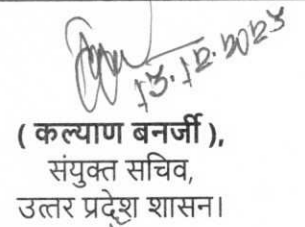 13.12.2023
( कल्याण बनर्जी ),
संयुक्त सचिव,
उत्तर प्रदेश शासन।